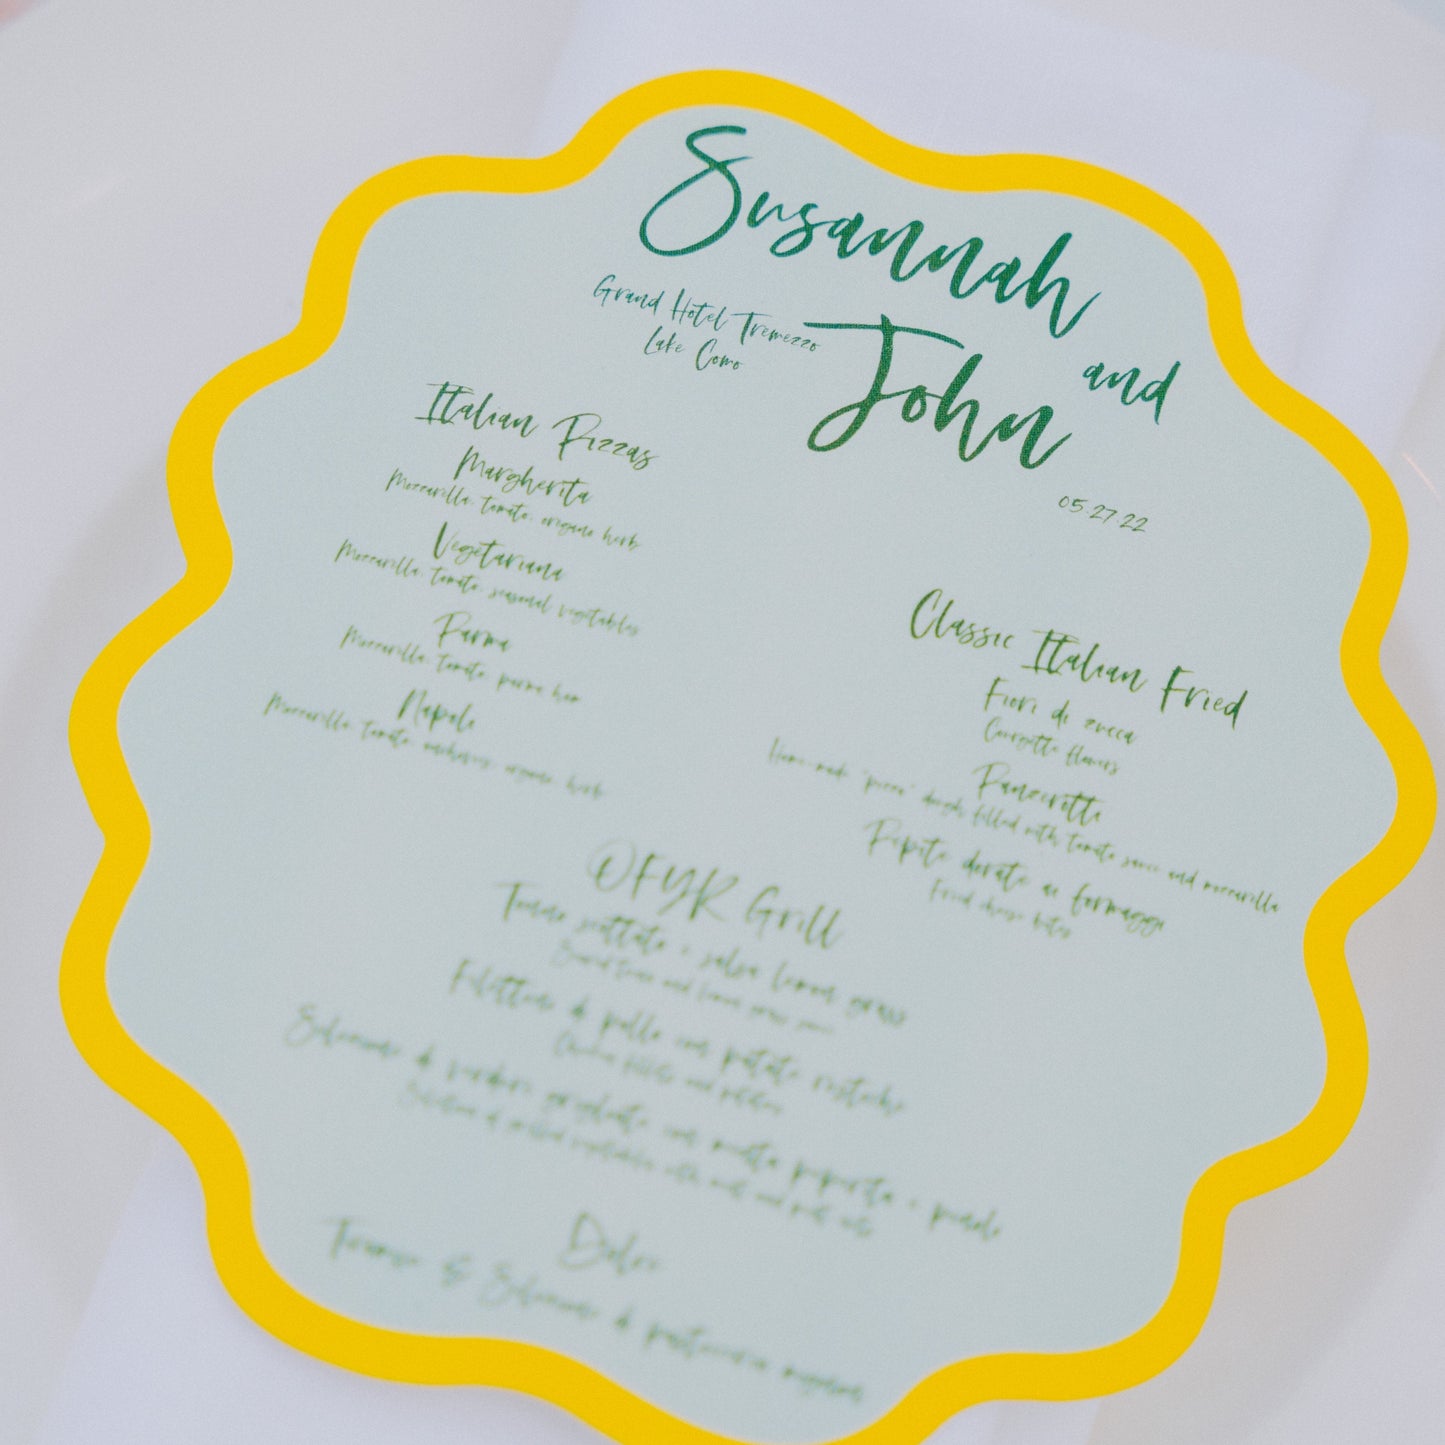 Susannah
and
John
Grand Hotel Tremezzo
Lake Como
05.27.22
Italian Pizzas
Margherita
Mozzarilla, tomato, origano herb
Vegetariana
Mozzarilla, tomato, seasonal vegetables
Parma
Mozzarilla, tomato, parma ham
Napoli
Mozzarilla, tomato, anchovies, origano, herb
Classic Italian Fried
Fiori di zucca
Courgette flowers
Panzerotti
Home-made "pizza" dough filled with tomato sauce and mozzarilla
Pepite dorate ai formaggi
Fried cheese bites
OFYR Grill
Tonno scottato e salsa lemon grass
Seared tuna and lemon grass
Filettino di pollo con patate rustiche
Chicken fillets and potatoes
Selezione di verdure grigliate con menta peperita e pinoli
Selection of grilled vegetables with mint and pine nuts
Dolci
Tiramisu & Selezione di pasticceria mignon